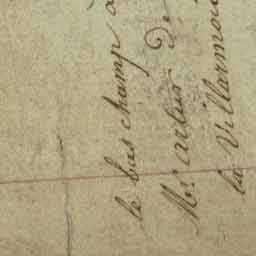 le bas champ à
Mr. artur de
la Villarmoi